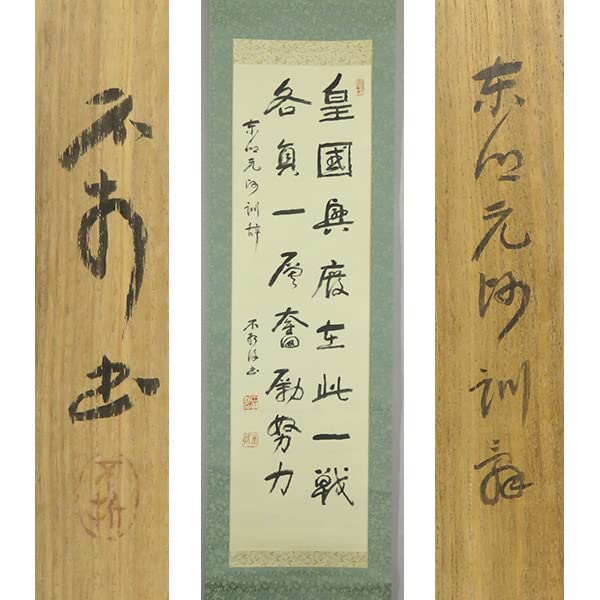 東郷元帥訓辞
皇國興廢在此一戰
各員一層奮勵努力
東郷元帥訓辞
不 書
不 書